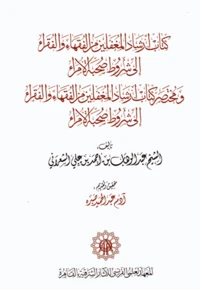 كتاب إرشاد المغفلين من الفقهاء والفقراء
إلى شروط صحبة الأمراء
ومختصر كتاب إرشاد المغفلين من الفقهاء والفقراء
إلى شروط صحبة الأمراء
تأليف
الشيخ عبد الوهاب بن أحمد بن علي الشعراني
تحقيق وتقديم
آدم عبد الحميد صبره
المعهد العلمي الفرنسي للآثار الشرقية بالقاهرة